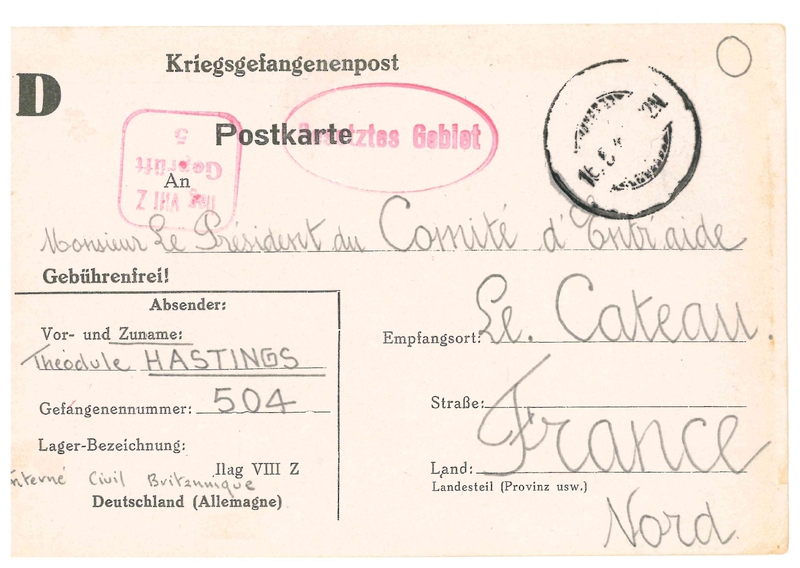 Kriegsgefangenenpost
D
Postkarte
Besetztes Gebiet
Ilag VIII Z
Geprüft
5
An
Monsieur Le Président du Comité d'Entraide
Gebührenfrei!
Absender:
Vor- und Zuname:
Théodule HASTINGS
Gefangenennummer: 504
Lager-Bezeichnung:
Ilag VIII Z
Interné Civil Britannique
Deutschland (Allemagne)
Empfangsort: Le. Cateau.
Straße:
Land: France
Landesteil (Provinz usw.)
Nord